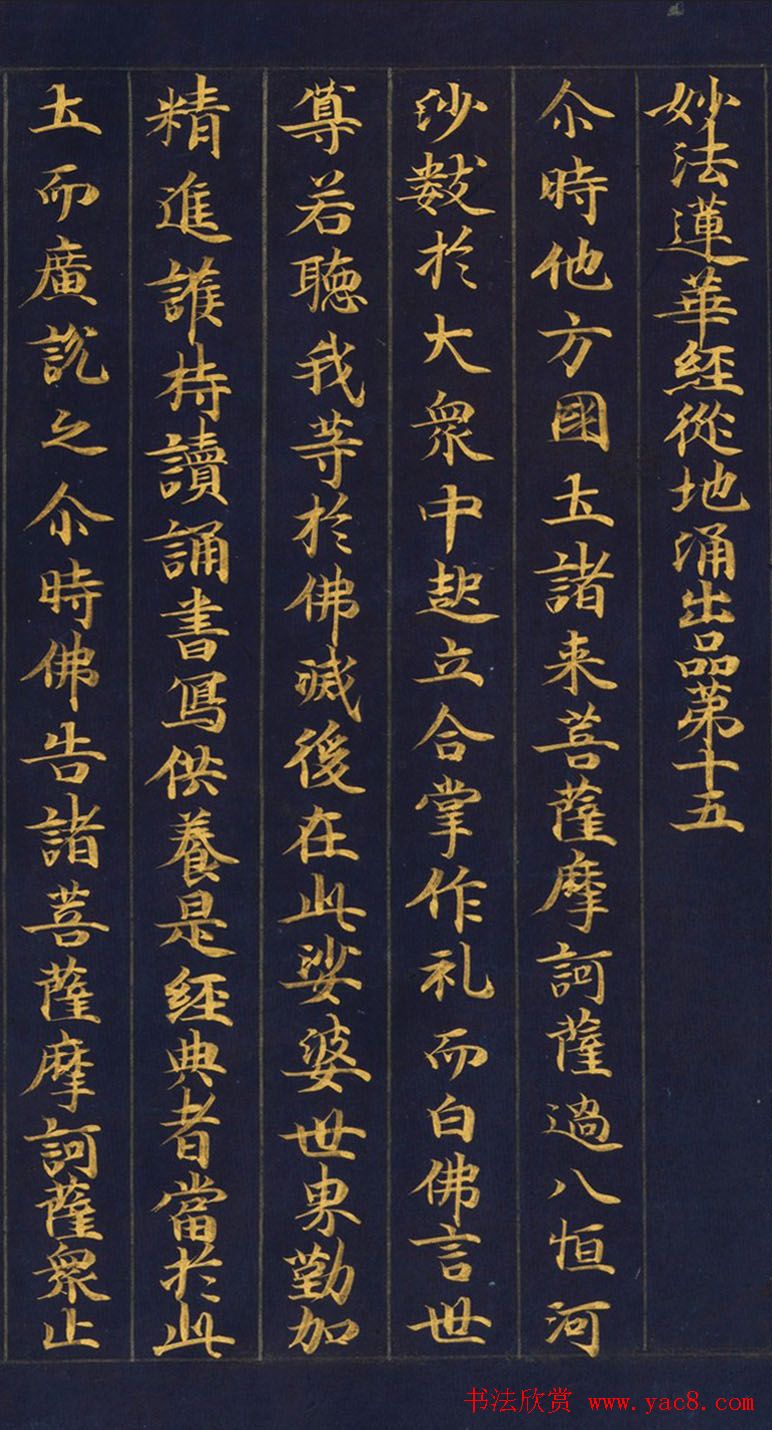 妙法蓮華経從地涌出品苐十五
尒時他方國土諸来菩薩摩訶薩過八恒河
沙數於大衆中起立合掌作礼而白佛言世
尊若聴我等於佛滅後在此娑婆世界勤加
精進護持讀誦書寫供養是経典者當於此
土而廣說之尒時佛告諸菩薩摩訶薩衆止
书法欣赏 www.yac8.com